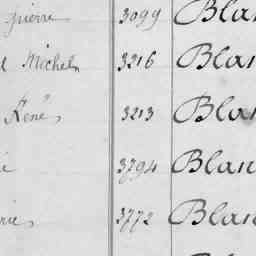 pierre 3099 Blan
l Michel 3216 Blan
René 3213 Blan
ie 3794 Blan
rie 3772 Blan